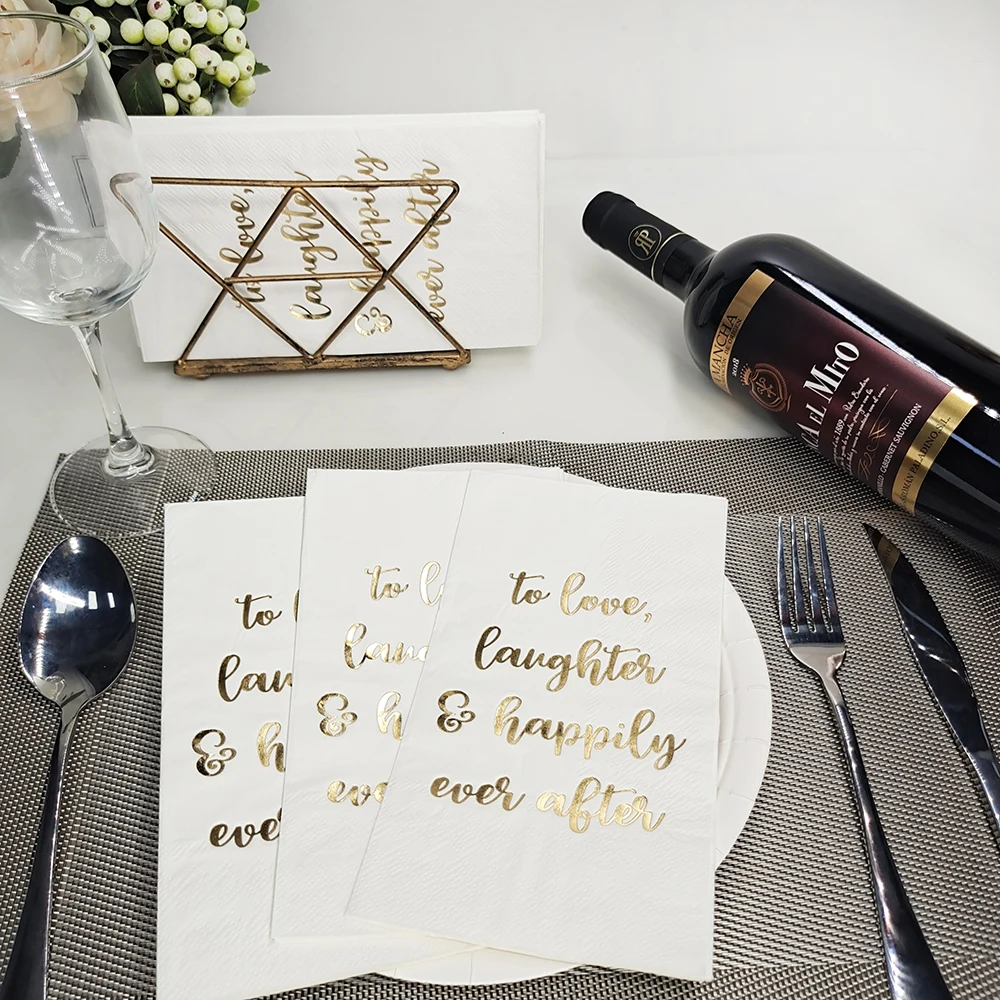 to love,
laughter
& happily
ever after
RP
MANCHA
2018
EL MITO
1889
CABERNET SAUVIGNON
ROMÁN PALADINO S.L.
to love,
laughter
& happily
ever after
to l
lau
& h
ever
to
lau
& h
eve